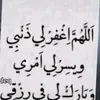 اللَّهُمَّ اغْفِرْ لِي ذَنْبِي
وَيَسِّرْ لِي أَمْرِي
وَبَارِكْ لِي فِي رِزْقِي